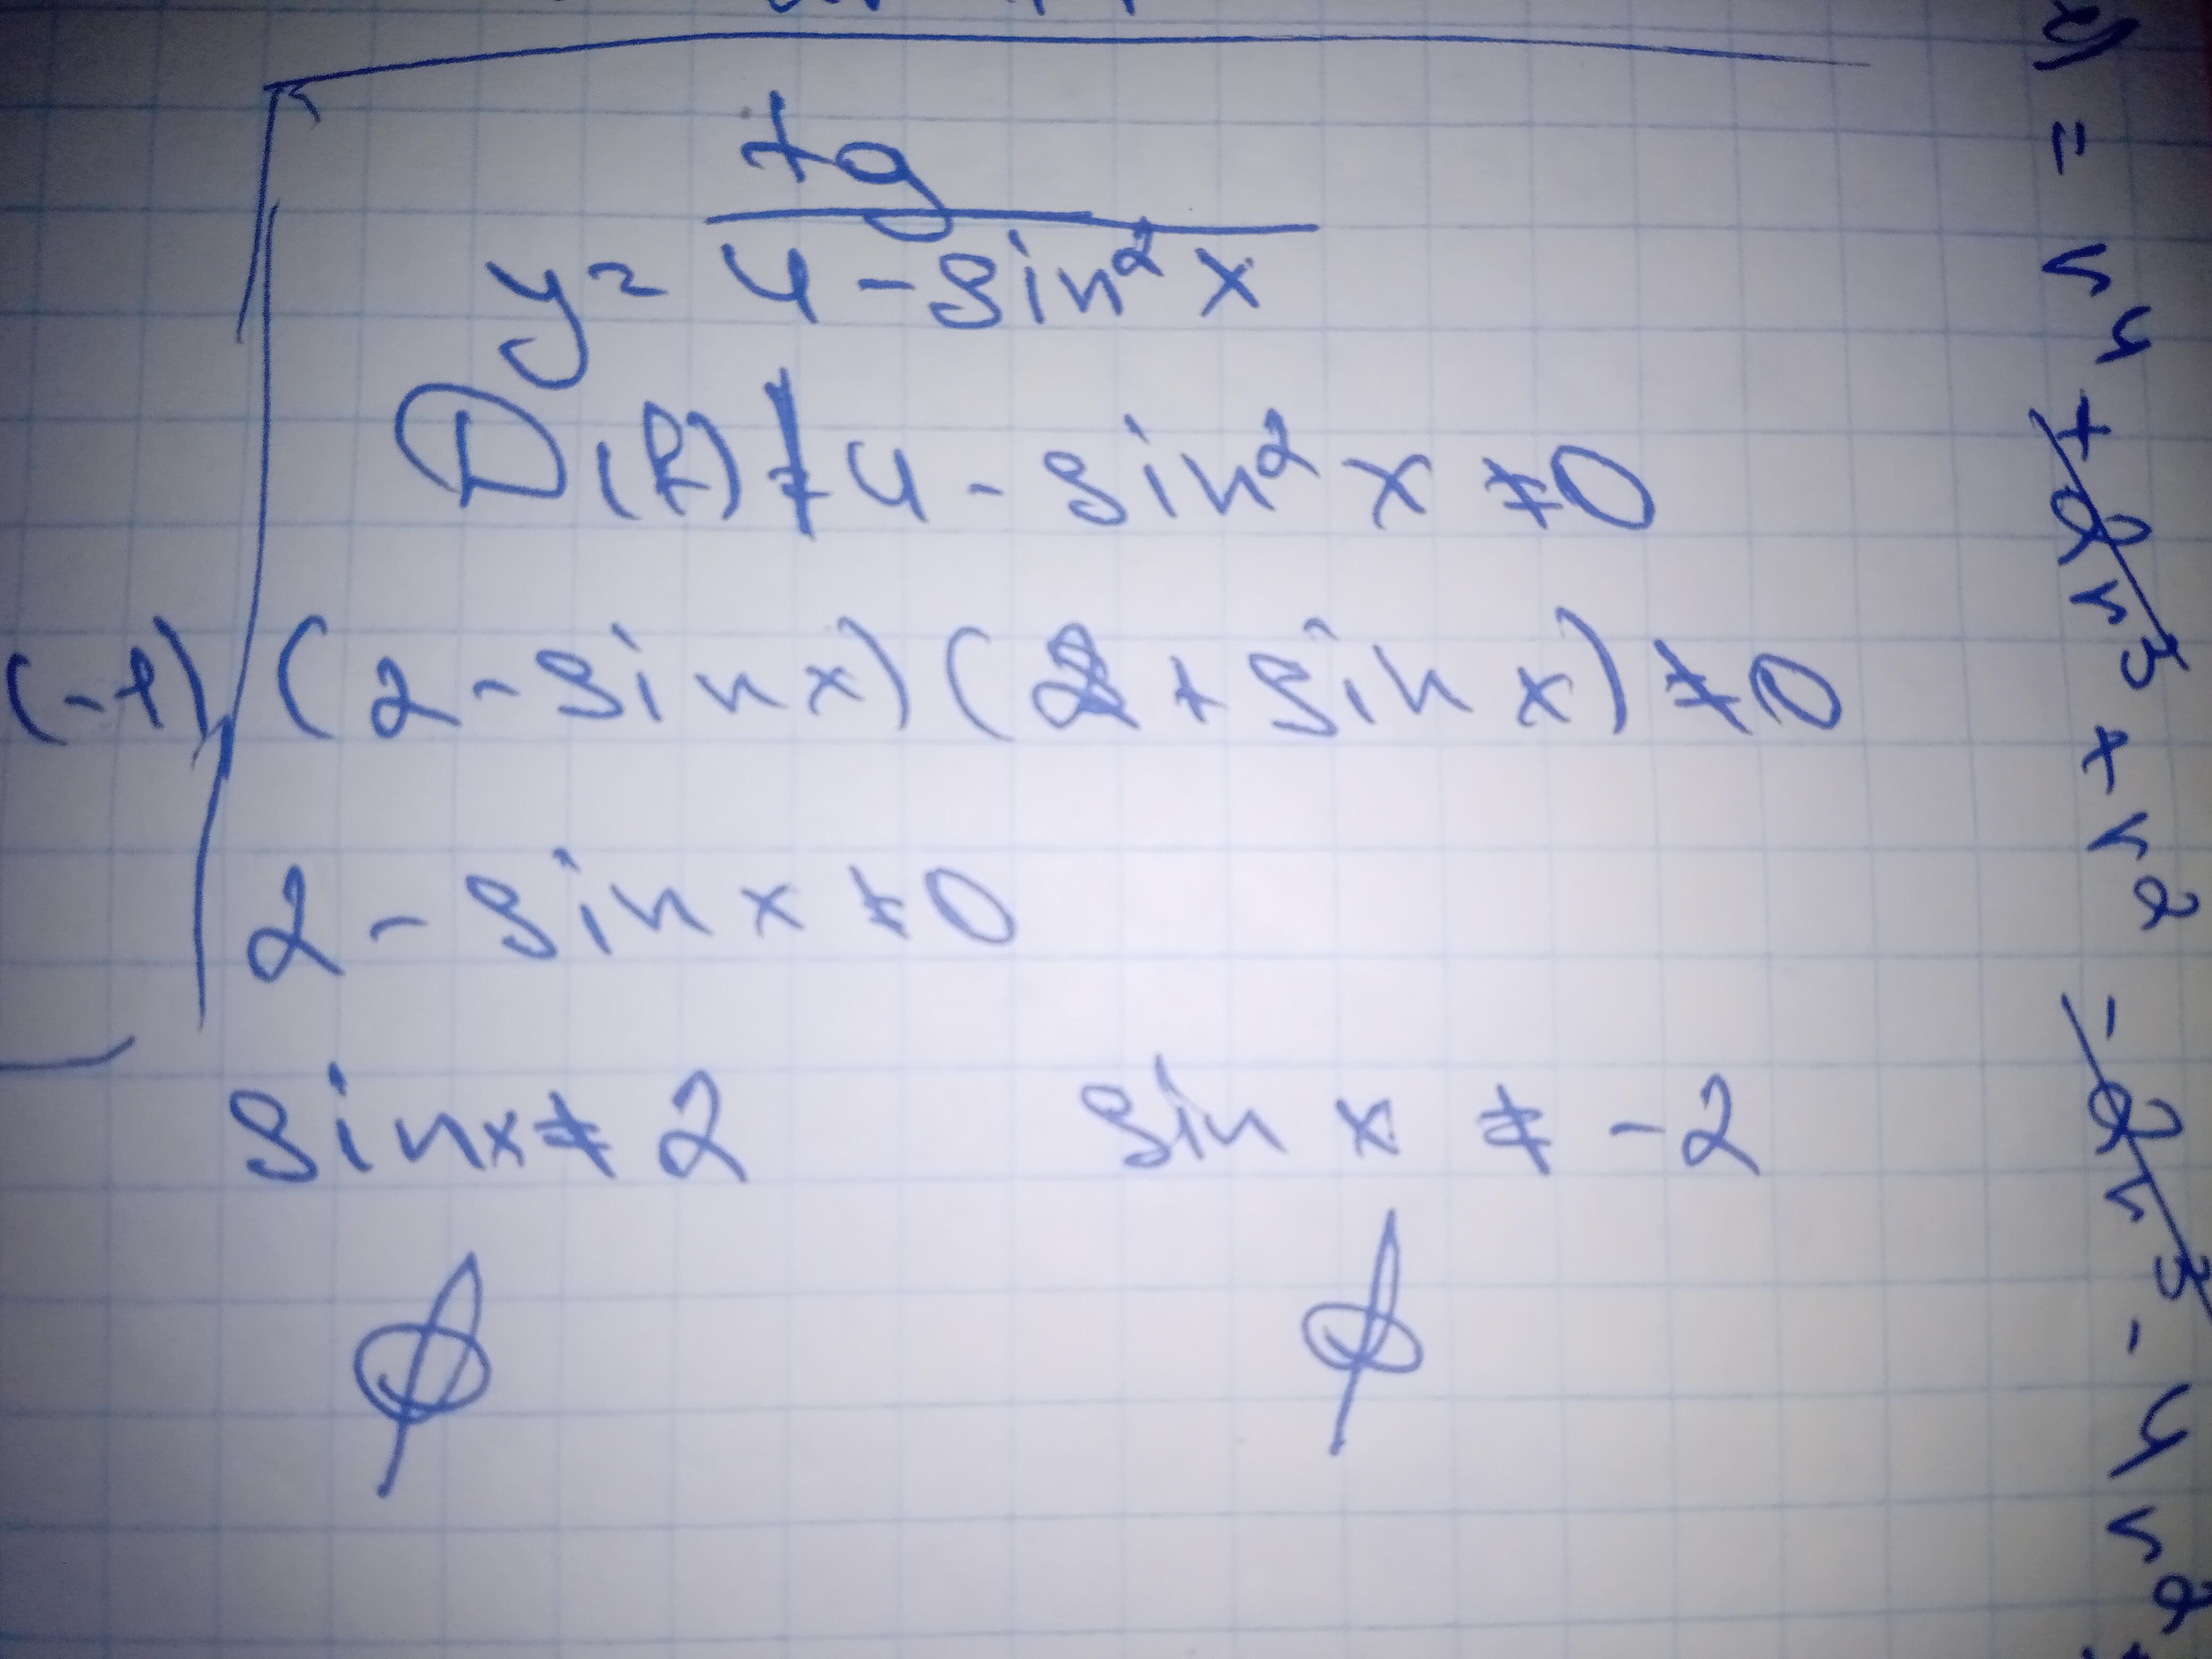 tg
y= 4-sin² x
D(f) 4 - sin² x ≠0
(-1) (2-sin x) (2 + sin x) ≠0
2 - sin x ≠0
sinx≠ 2 sin x ≠ -2
∅ ∅
= n⁴ + 2n³ + n² - 2n³ - 4n²